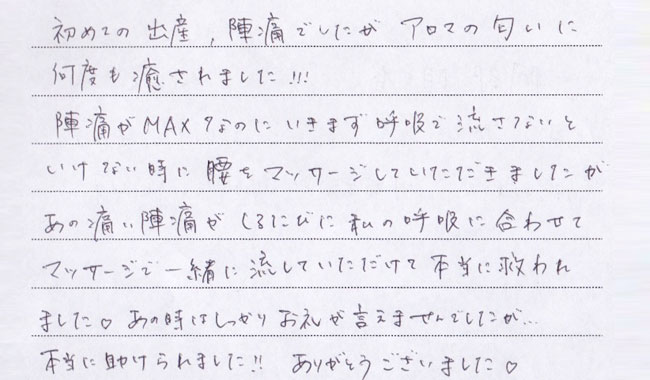 初めての出産,陣痛でしたが アロマの匂いに
何度も癒されました!!!
陣痛がMAXなのにいきまず呼吸で流さないと
いけない時に腰をマッサージしていただきましたが
あの痛い陣痛がくるたびに私の呼吸に合わせて
マッサージで一緒に流していただけて本当に救われ
ました♡ あの時はしっかりお礼が言えませんでしたが…
本当に助けられました!! ありがとうございました♡